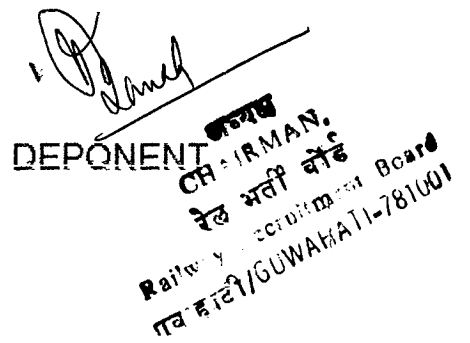 DEPONENT
अध्यक्ष
CHAIRMAN,
रेल भर्ती बोर्ड
Railway Recruitment Board
गुवाहाटी/GUWAHATI-781001